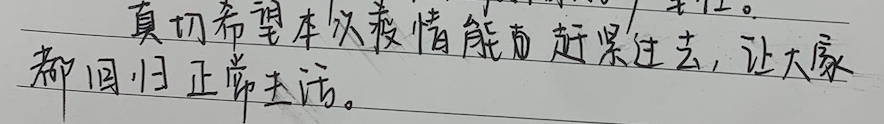 真切希望本次疫情能够赶紧过去，让大家
都回归正常生活。